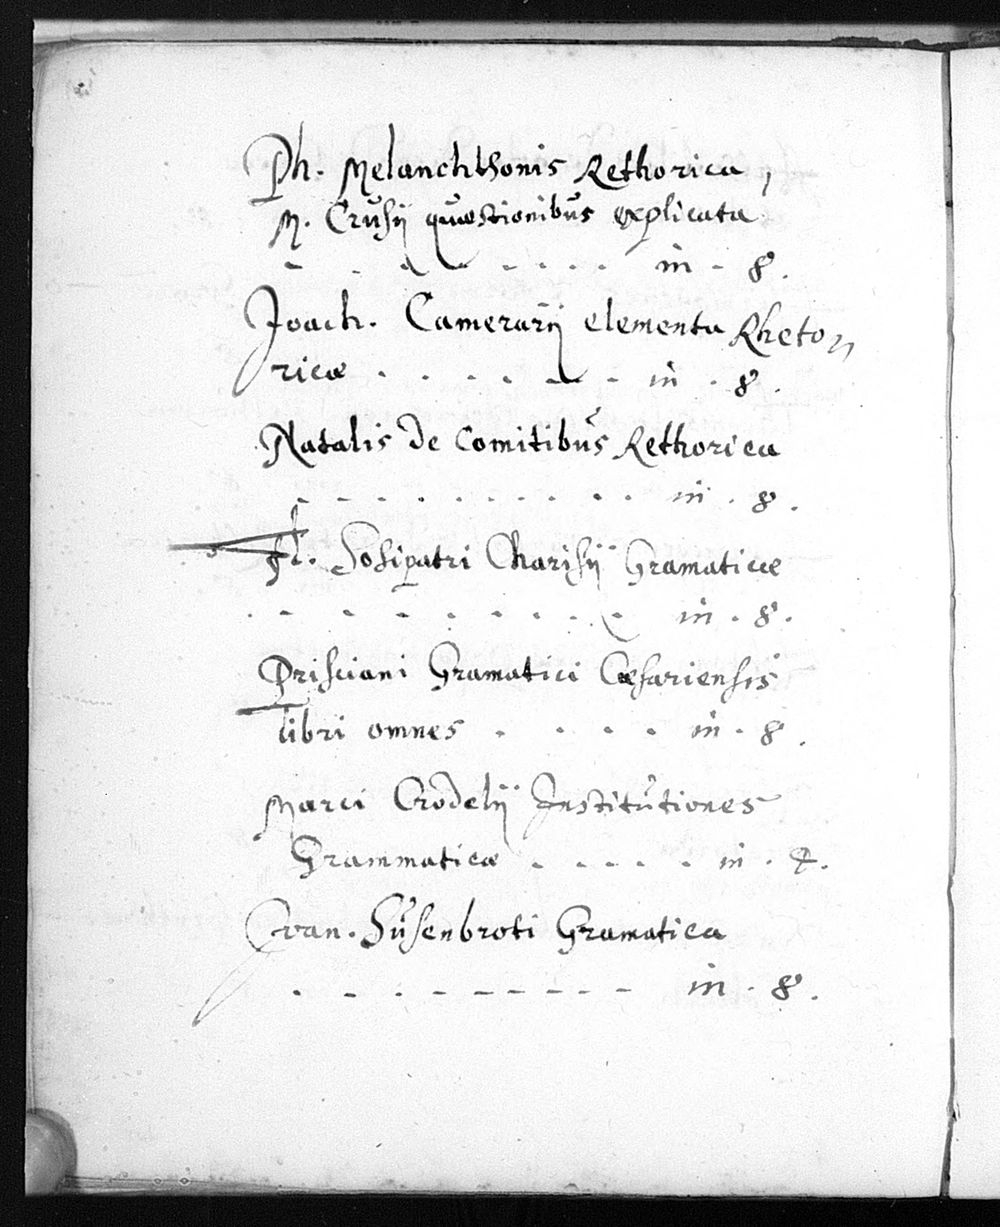 Ph. Melanchthonis Rethorica,
M. Crusij quæstionibus explicata.
- - - - - - - - in - 8.
Joach. Camerarij elementa Rheto=
ricæ . . . . - - - in . 8.
Natalis de Comitibus Rethorica
- - - - - - - - - in . 8.
Fl. Sosipatri Charisij Gramaticæ
- - - - - - - - - in . 8.
Prisciani Gramatici Cæsariensis
libri omnes . . . . in . 8.
Marci Crodelij Institutiones
Grammaticæ . . . . . in . 4.
Susenbroti Gramatica
- - - - - - - - - in . 8.